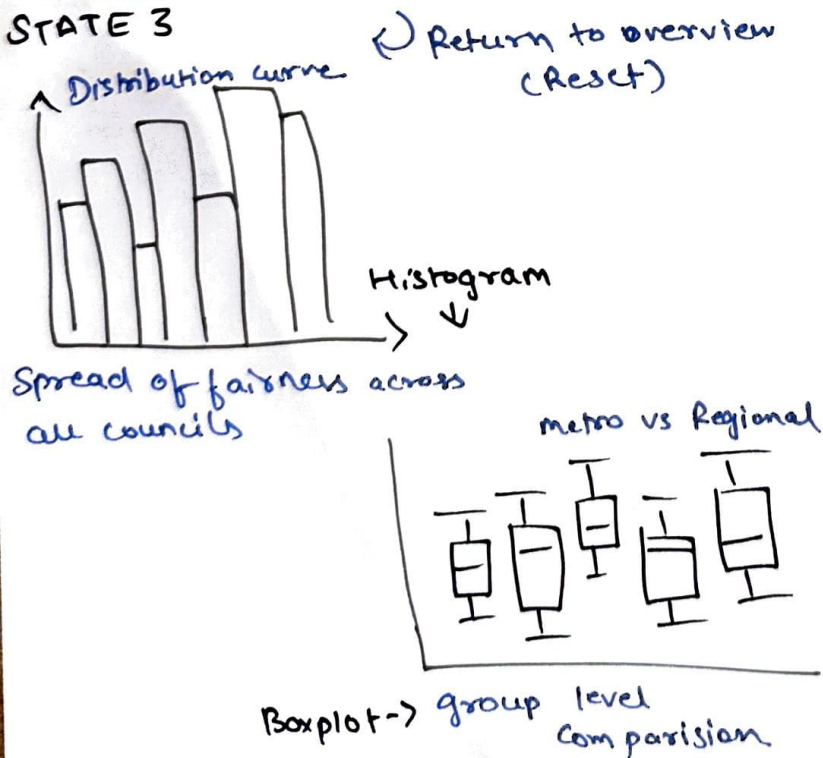 STATE 3
Return to overview
(Reset)
Distribution curve
Histogram
Spread of fairness across
all councils
metro vs Regional
Boxplot-> group level
comparision